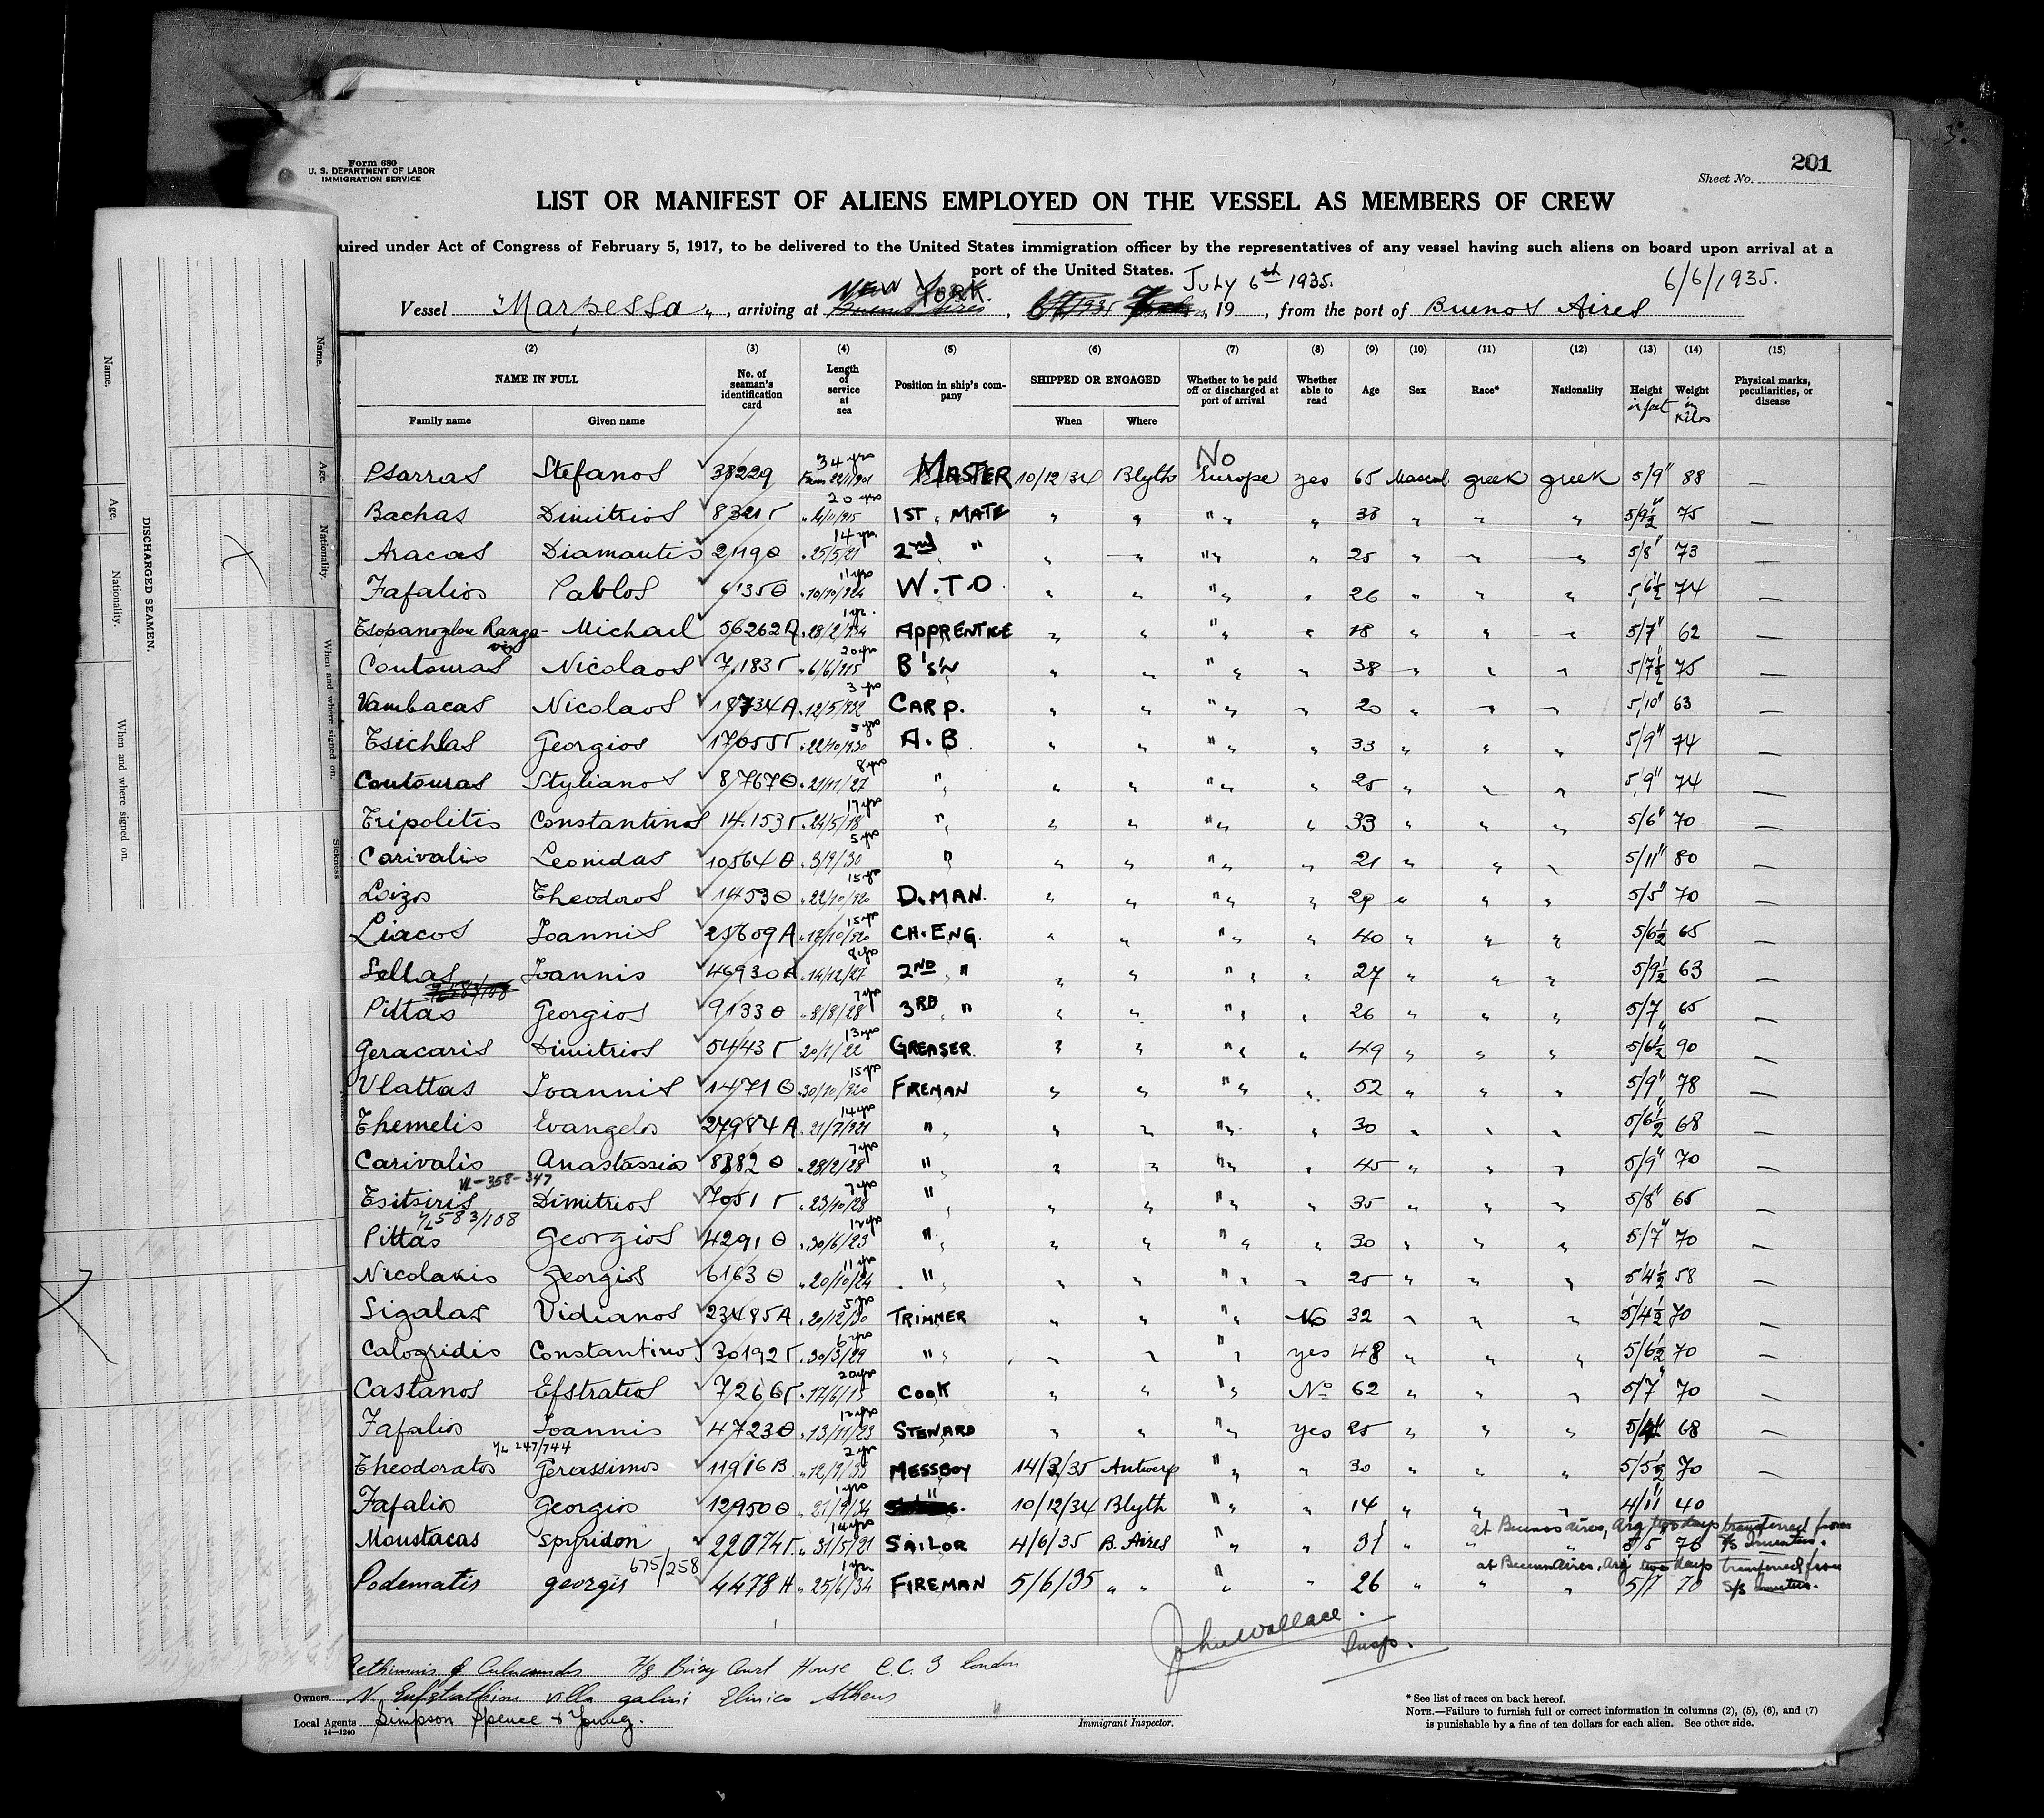 Form 680
U. S. DEPARTMENT OF LABOR
IMMIGRATION SERVICE
201
Sheet No.
LIST OR MANIFEST OF ALIENS EMPLOYED ON THE VESSEL AS MEMBERS OF CREW
uired under Act of Congress of February 5, 1917, to be delivered to the United States immigration officer by the representatives of any vessel having such aliens on board upon arrival at a
port of the United States. July 6th 1935. 6/6/1935.
Vessel "Marpessa", arriving at NEW YORK. , 19 , from the port of Buenos Aires
(2) (3) (4) (5) (6) (7) (8) (9) (10) (11) (12) (13) (14) (15)
NAME IN FULL No. of seaman's identification card Length of service at sea Position in ship's company SHIPPED OR ENGAGED Whether to be paid off or discharged at port of arrival Whether able to read Age Sex Race* Nationality Height in feet Weight in Kilos Physical marks, peculiarities, or disease
Family name Given name When Where
Psarras Stefanos 38229 34 yrs MASTER 10/12/34 Blyth No Europe yes 65 Mascul. greek greek 5/9" 88 —
Bachas Dimitrios 20 yrs 1ST " MATE " " " " " 33 " " " 5/9½" 75 —
Aracas Diamantis 14 yrs. 25/5/21 2nd " " " " " " 25 " " " 5/8" 73 —
Fafalios Pablos 6135Θ 11 yrs 10/10/924 W.T.O. " " " " " 26 " " " 5/6½" 74 —
Michail 56262A 1 yr. 28/2/934 APPRENTICE " " " " " 18 " " " 5/7" 62 —
Coutouras Nicolaos 20 yrs 6/6/915 B's'n " " " " " 38 " " " 5/7½" 75 —
Vambacas Nicolaos 18734A 3 yrs 12/5/932 CARP. " " " " " 20 " " " 5/10" 63 —
Tsichlas Georgios 5 yrs 22/10/930 A.B. " " " " " 33 " " " 5/9" 74 —
Coutouras Stylianos 8767Θ 8 yrs 21/11/27 " " " " " " 25 " " " 5/9" 74 —
Tripolitis Constantinos 17 yrs 24/5/18 " " " " " " 33 " " " 5/6" 70 —
Carivalis Leonidas 10564Θ 5 yrs 3/9/30 " " " " " " 21 " " " 5/11" 80 —
Loizos Theodoros 1453Θ 15 yrs 22/10/920 D.MAN. " " " " " 29 " " " 5/5" 70 —
Liacos Ioannis 25609A 15 yrs CH.ENG. " " " " " 40 " " " 5/6½ 65 —
Sellas Ioannis 46930A 8 yrs 14/12/27 2ND " " " " " " 27 " " " 5/9½ 63 —
Pittas Georgios 9133Θ 7 yrs 8/8/28 3RD " " " " " " 26 " " " 5/7 65 —
Geracaris Dimitrios 13 yrs GREASER. " " " " " 49 " " " 5/6½ 90 —
Vlattas Ioannis 1471Θ 15 yrs 30/10/920 FIREMAN " " " " " 52 " " " 5/9" 78 —
Themelis Evangelos 27984A 14 yrs 21/7/921 " " " " " " 30 " " " 5/6½ 68 —
Carivalis Anastassios 8882Θ 7 yrs 28/2/28 " " " " " " 45 " " " 5/9" 70 —
Tsitsiris Dimitrios 7 yrs 23/10/28 " " " " " " 35 " " " 5/8" 65 —
583/108
Pittas Georgios 4291Θ 12 yrs 30/6/23 " " " " " " 30 " " " 5/7" 70 —
Nicolakis Georgios 6163Θ 11 yrs 20/10/24 " " " " " " 25 " " " 5/4½ 58 —
Sigalas Vidianos 23485A 5 yrs 20/12/30 TRIMMER " " " " No 32 " " " 5/4½ 70 —
Calogridis Constantinos 6 yrs 30/3/29 " " " " " yes 48 " " " 5/6½ 70 —
Castanos Efstratios 20 yrs 17/6/15 COOK " " " " No 62 " " " 5/7" 70 —
Fafalios Ioannis 4723Θ 12 yrs 13/11/23 STEWARD " " " " yes 25 " " " 68 —
247/744
Theodoratos Gerassimos 11916B 2 yr MESSBOY 14/3/35 Antwerp " " " 30 " " " 5/5½ 70 —
Fafalios Georgios 12950Θ 1 yrs 21/9/34 " 10/12/34 Blyth " " " 14 " " " 4/11" 40 —
at Buenos Aires, Arg two days transferred from
Moustacas Spyridon 14 yrs 31/5/21 SAILOR 4/6/35 B. Aires " " " 31 " " " 5/5 76 S/S
675/258
at Buenos Aires, Arg two days transferred from
Podematis georgis 4478 H 1 yr. 25/6/34 FIREMAN 5/6/35 " " " " " 26 " " " 5/7 70 S/S
John Wallace.
Insp.
Court House E.C.3 London
Owners N. Eufstathiou villa galini Athens
Local Agents Simpson Spence & Young.
14—1240
Immigrant Inspector.
* See list of races on back hereof.
NOTE.—Failure to furnish full or correct information in columns (2), (5), (6), and (7)
is punishable by a fine of ten dollars for each alien. See other side.
DISCHARGED SEAMEN.
Name. Age. Nationality. When and where signed on.
Name. Age. Nationality. When and where signed on. Sickness